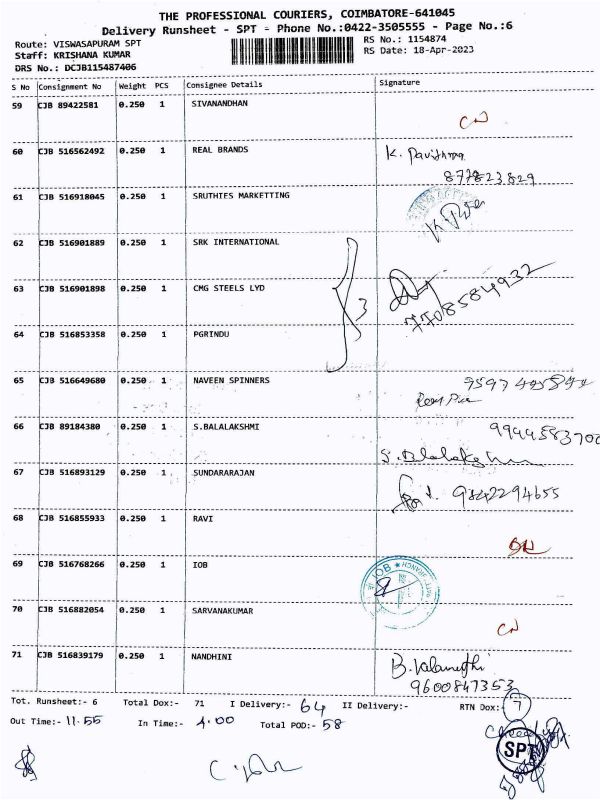 THE PROFESSIONAL COURIERS, COIMBATORE-641045
Delivery Runsheet - SPT - Phone No.:0422-3505555 - Page No.:6
Route: VISWASAPURAM SPT
RS No.: 1154874
Staff: KRISHANA KUMAR
RS Date: 18-Apr-2023
DRS No.: DCJB115487406
S No Consignment No Weight PCS Consignee Details Signature
59 CJB 89422581 0.250 1 SIVANANDHAN
CN
60 CJB 516562492 0.250 1 REAL BRANDS K. Pavithra
877823829
61 CJB 516918045 0.250 1 SRUTHIES MARKETTING
62 CJB 516901889 0.250 1 SRK INTERNATIONAL
63 CJB 516901898 0.250 1 CMG STEELS LYD 3 7708584932
64 CJB 516853358 0.250 1 PGRINDU
65 CJB 516649680 0.250 1 NAVEEN SPINNERS
66 CJB 89184380 0.250 1 S.BALALAKSHMI 9944583700
S. Balalakshmi
67 CJB 516893129 0.250 1 SUNDARARAJAN 9842294655
68 CJB 516855933 0.250 1 RAVI
69 CJB 516768266 0.250 1 IOB IOB
70 CJB 516882054 0.250 1 SARVANAKUMAR
CN
71 CJB 516839179 0.250 1 NANDHINI B. Valarmathi
9600847353
Tot. Runsheet:- 6 Total Dox:- 71 I Delivery:- 64 II Delivery:- RTN Dox:- 7
Out Time:- 11.55 In Time:- 4.00 Total POD:- 58
SPT